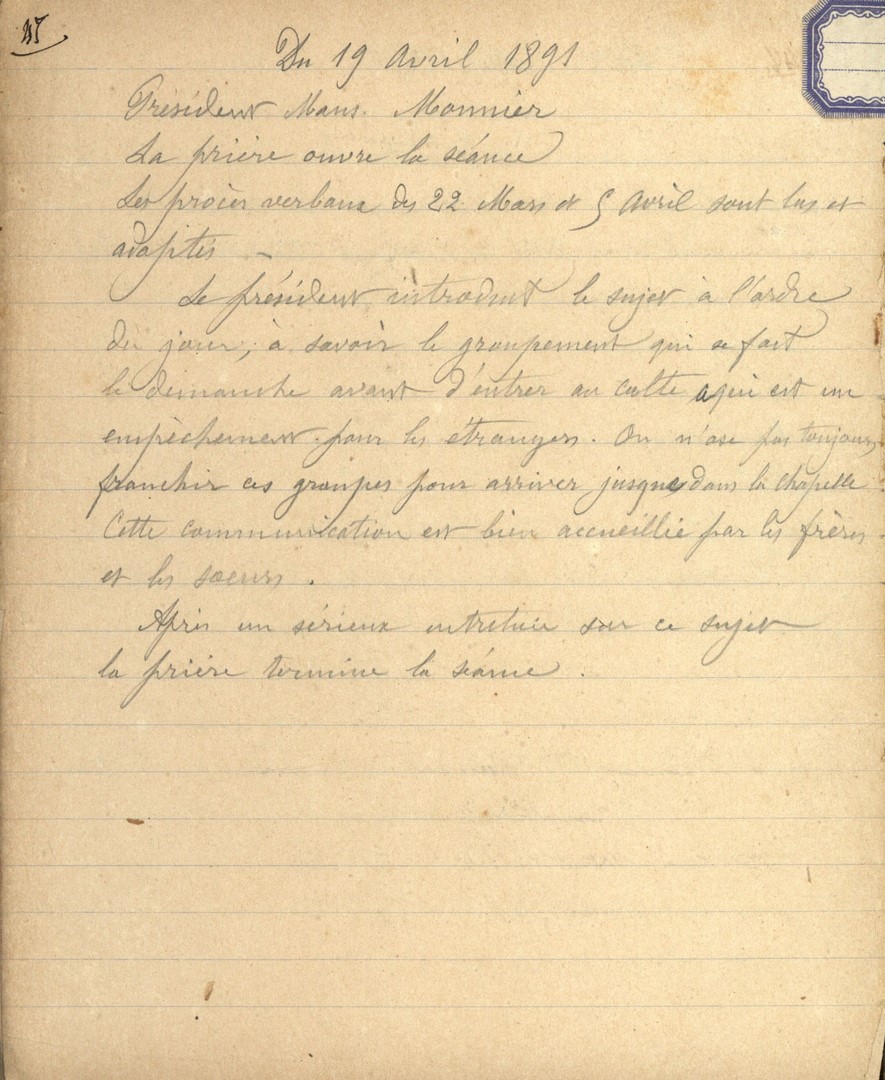 45
Du 19 Avril 1891
Président Mons. Monnier
La prière ouvre la séance
Les procès verbaux des 22 Mars et 5 Avril sont lus et
adoptés —
Le président introduit le sujet à l'ordre
du jour, à savoir le groupement qui se fait
le dimanche avant d'entrer au culte qui est un
empêchement pour les étrangers. On n'ose pas toujours
franchir ces groupes pour arriver jusque dans la chapelle.
Cette communication est bien accueillie par les frères
et les soeurs.
Après un sérieux entretien sur ce sujet
la prière termine la séance.